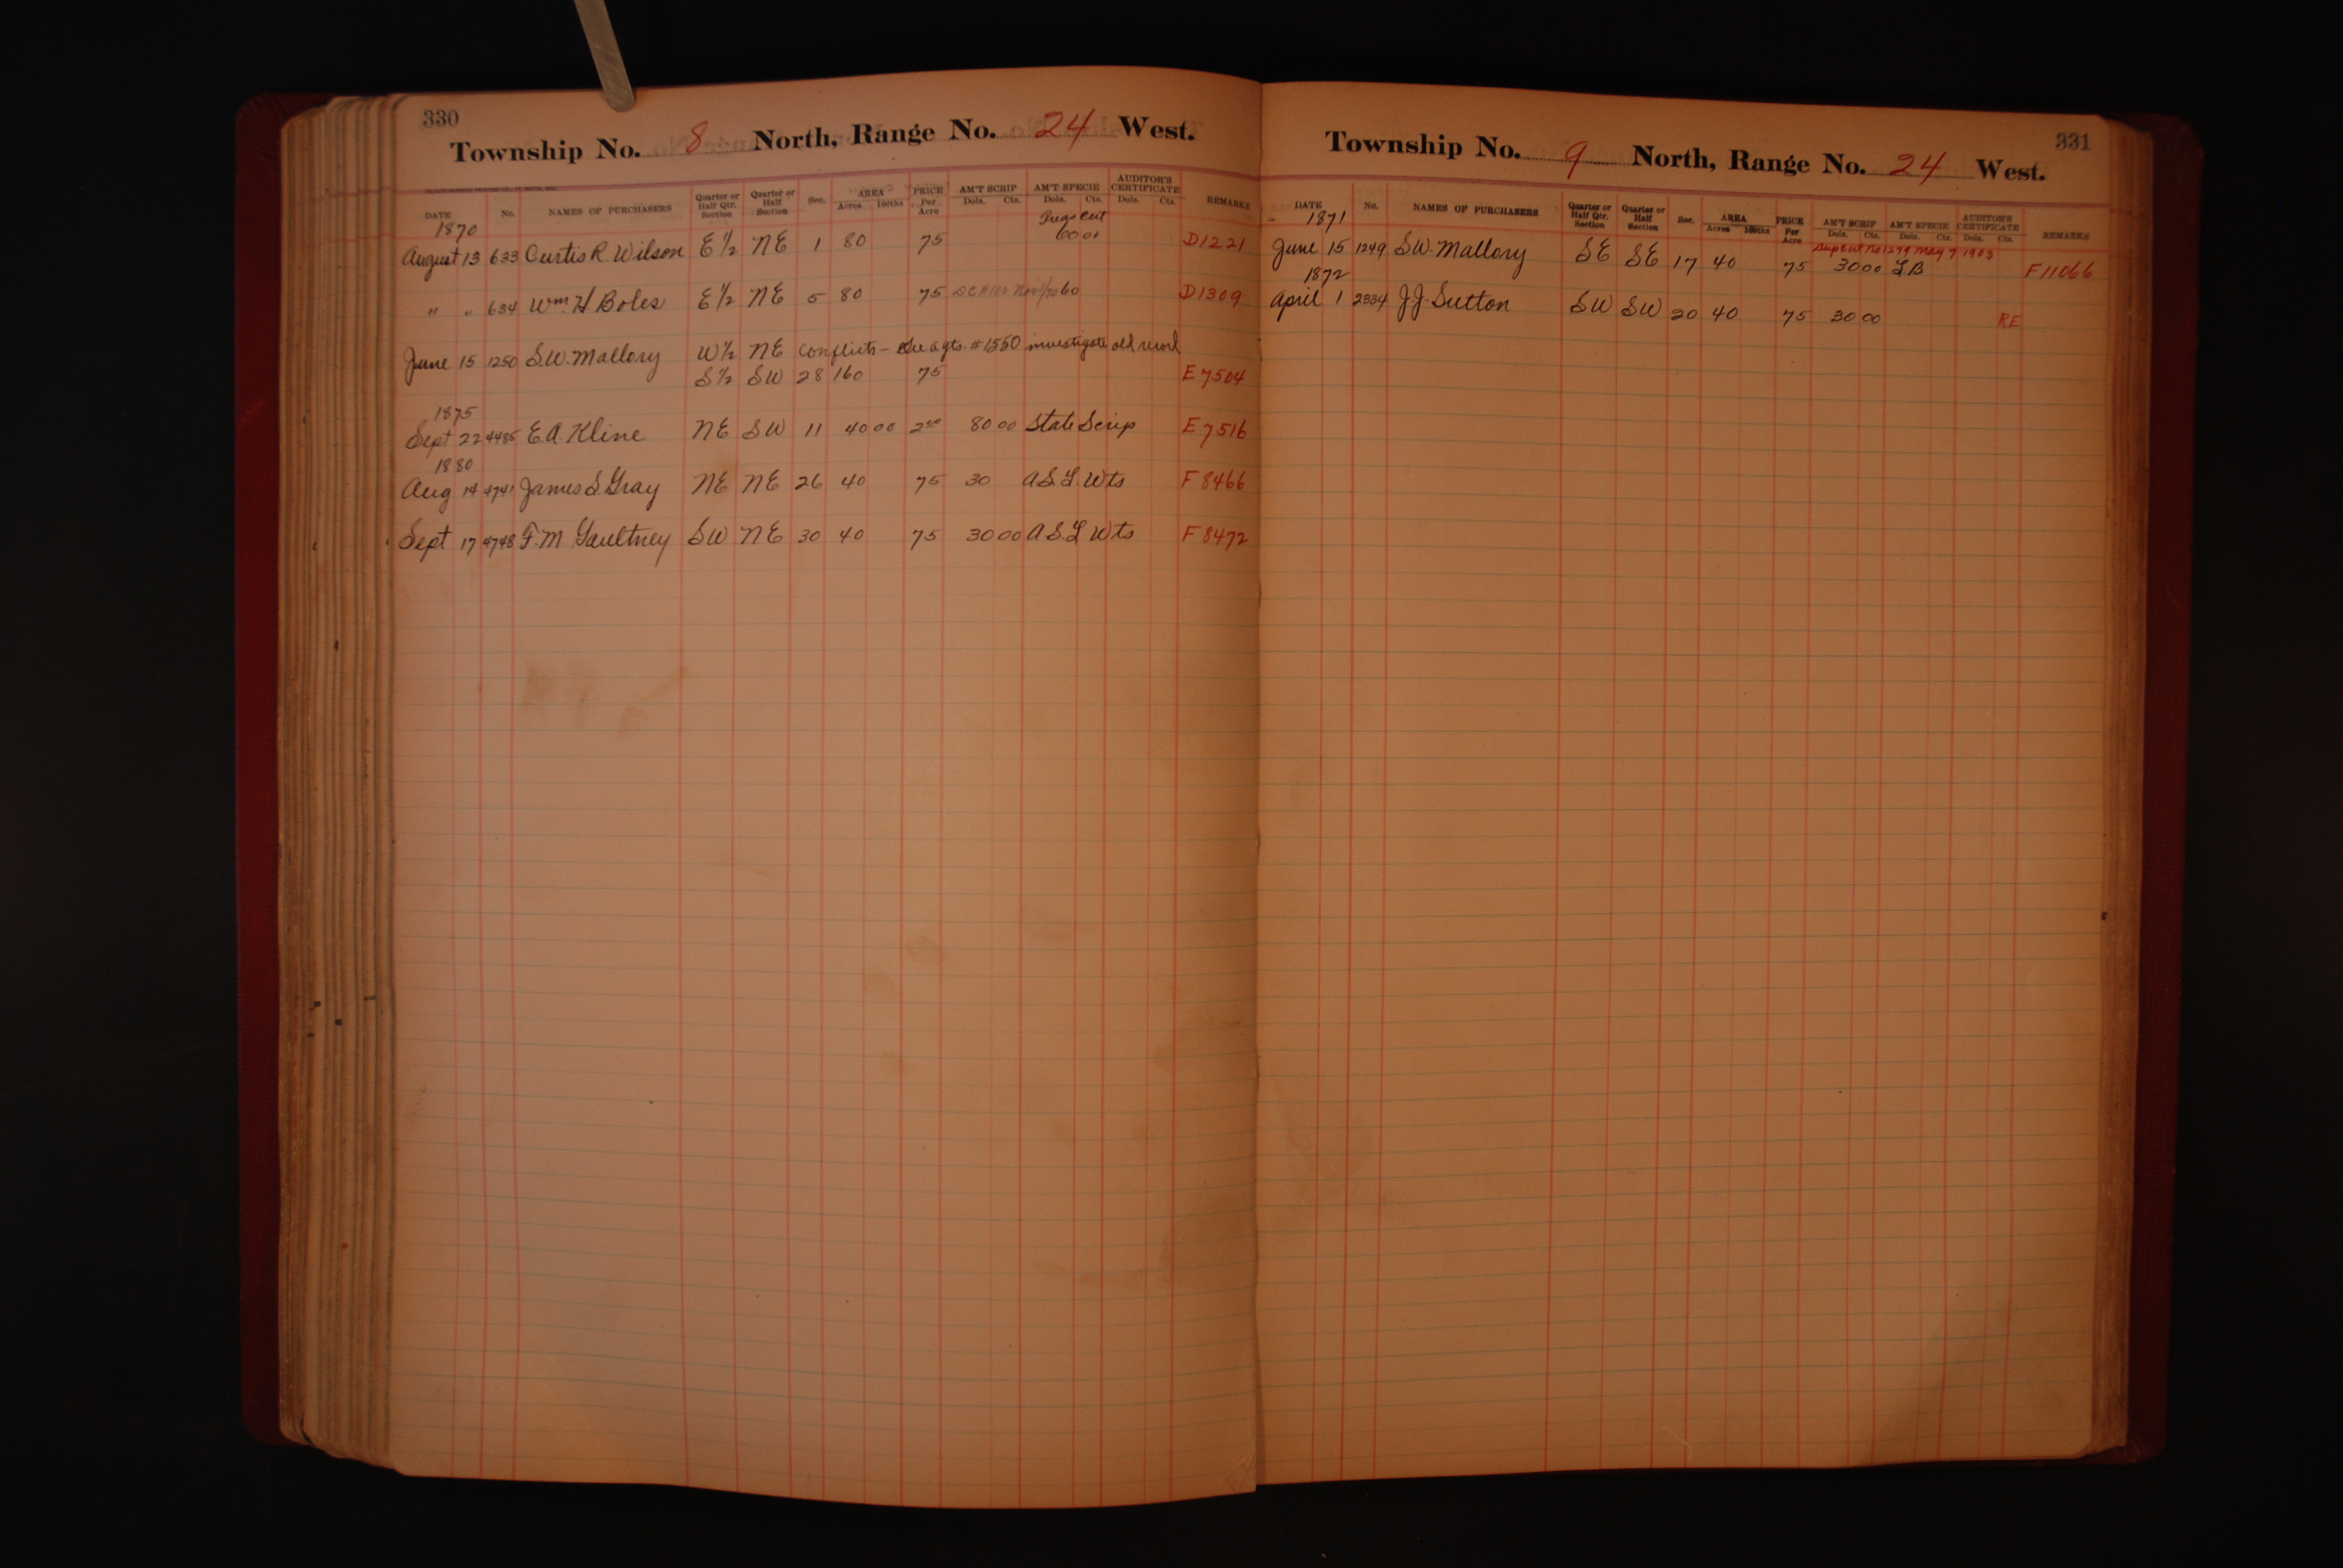 330
Township No. 8 North, Range No. 24 West.
DATE No. NAMES OF PURCHASERS Quarter or Half Qtr. Section Quarter or Half Section Sec. AREA Acres 100ths PRICE Per Acre AM'T SCRIP Dols. Cts. AM'T SPECIE Dols. Cts. AUDITOR'S CERTIFICATE Dols. Cts. REMARKS
1870
August 13 633 Curtis R. Wilson E½ NE 1 80 75 60 00 D1221
" " 634 Wm. H Boles E½ NE 5 80 75 60 D1309
June 15 1250 S.W. Mallory W½ NE Conflicts - See agts. #1550 investigate old record
S½ SW 28 160 75 E7504
1875
Sept 22 4485 E.A. Kline NE SW 11 40 00 2 00 80 00 State Scrip E7516
1880
Aug 14 4741 James S. Gray NE NE 26 40 75 30 A.S.L. Wts F8466
Sept 17 4748 F.M. Gaultney SW NE 30 40 75 30 00 A.S.L Wts F8472
331
Township No. 9 North, Range No. 24 West.
DATE No. NAMES OF PURCHASERS Quarter or Half Qtr. Section Quarter or Half Section Sec. AREA Acres 100ths PRICE Per Acre AM'T SCRIP Dols. Cts. AM'T SPECIE Dols. Cts. AUDITOR'S CERTIFICATE Dols. Cts. REMARKS
1871
No 1279 May 7 1903
June 15 1249 S.W. Mallory SE SE 17 40 75 30 00 LB F11066
1872
April 1 2334 J.J. Sutton SW SW 20 40 75 30 00 RE